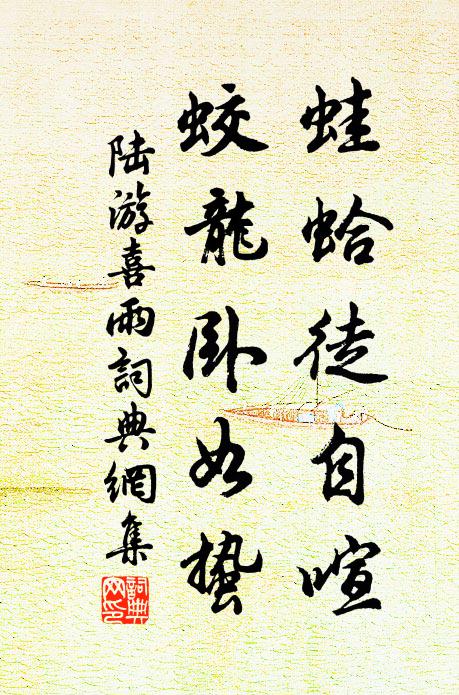 蛙蛤徒自喧
蛟龍卧如蟄
陆游喜雨詞典網集
詞典网印